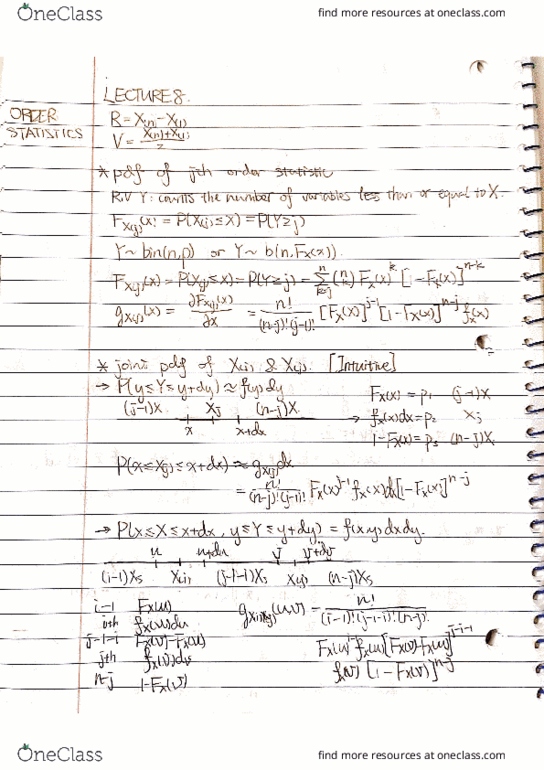 OneClass
find more resources at oneclass.com
LECTURE 8.
ORDER
STATISTICS
R = X(n) - X(1)
V = (X(n)+X(1))/2
* pdf of jth order statistic
R.V Y: counts the number of variables less than or equal to X.
F_X(j)(x) = P(X(j) ≤ x) = P(Y ≥ j)
Y ~ bin(n,p) or Y ~ b(n, F_X(x)).
F_X(j)(x) = P(X(j) ≤ x) = P(Y ≥ j) = Σ_{k=j}^{n} (n k) F_X(x)^k [1 - F_X(x)]^{n-k}
g_X(j)(x) = ∂F_X(j)(x)/∂x = n!/((n-j)!(j-1)!) [F_X(x)]^{j-1} [1 - F_X(x)]^{n-j} f_X(x)
* joint pdf of X(i) & X(j). [Intuitive]
→ P(y ≤ Y ≤ y+dy) ≈ f(y)dy
(j-1)X Xj (n-j)X
x x+dx
→ F_X(x) = p1 (j-1)X
f_X(x)dx = p2 Xj
1-F_X(x) = p3 (n-j)X
P(x ≤ X(j) ≤ x+dx) ≈ g_X(j)dx
= n!/((n-j)!(j-1)!) F_X(x)^{j-1} f_X(x)dx [1-F_X(x)]^{n-j}
→ P(x ≤ X ≤ x+dx, y ≤ Y ≤ y+dy) = f(x,y)dxdy.
u u+du v v+dv
(i-1)Xs X(i) (j-i-1)Xs X(j) (n-j)Xs
i-1 F_X(u)
ith f_X(u)du
j-1-i F_X(v)-F_X(u)
jth f_X(v)dv
n-j 1-F_X(v)
g_X(i)X(j)(u,v) = n!/((i-1)!(j-i-1)!(n-j)!)
F_X(u)^{i-1} f_X(u) [F_X(v)-F_X(u)]^{j-i-1}
f_X(v) [1-F_X(v)]^{n-j}
OneClass
find more resources at oneclass.com